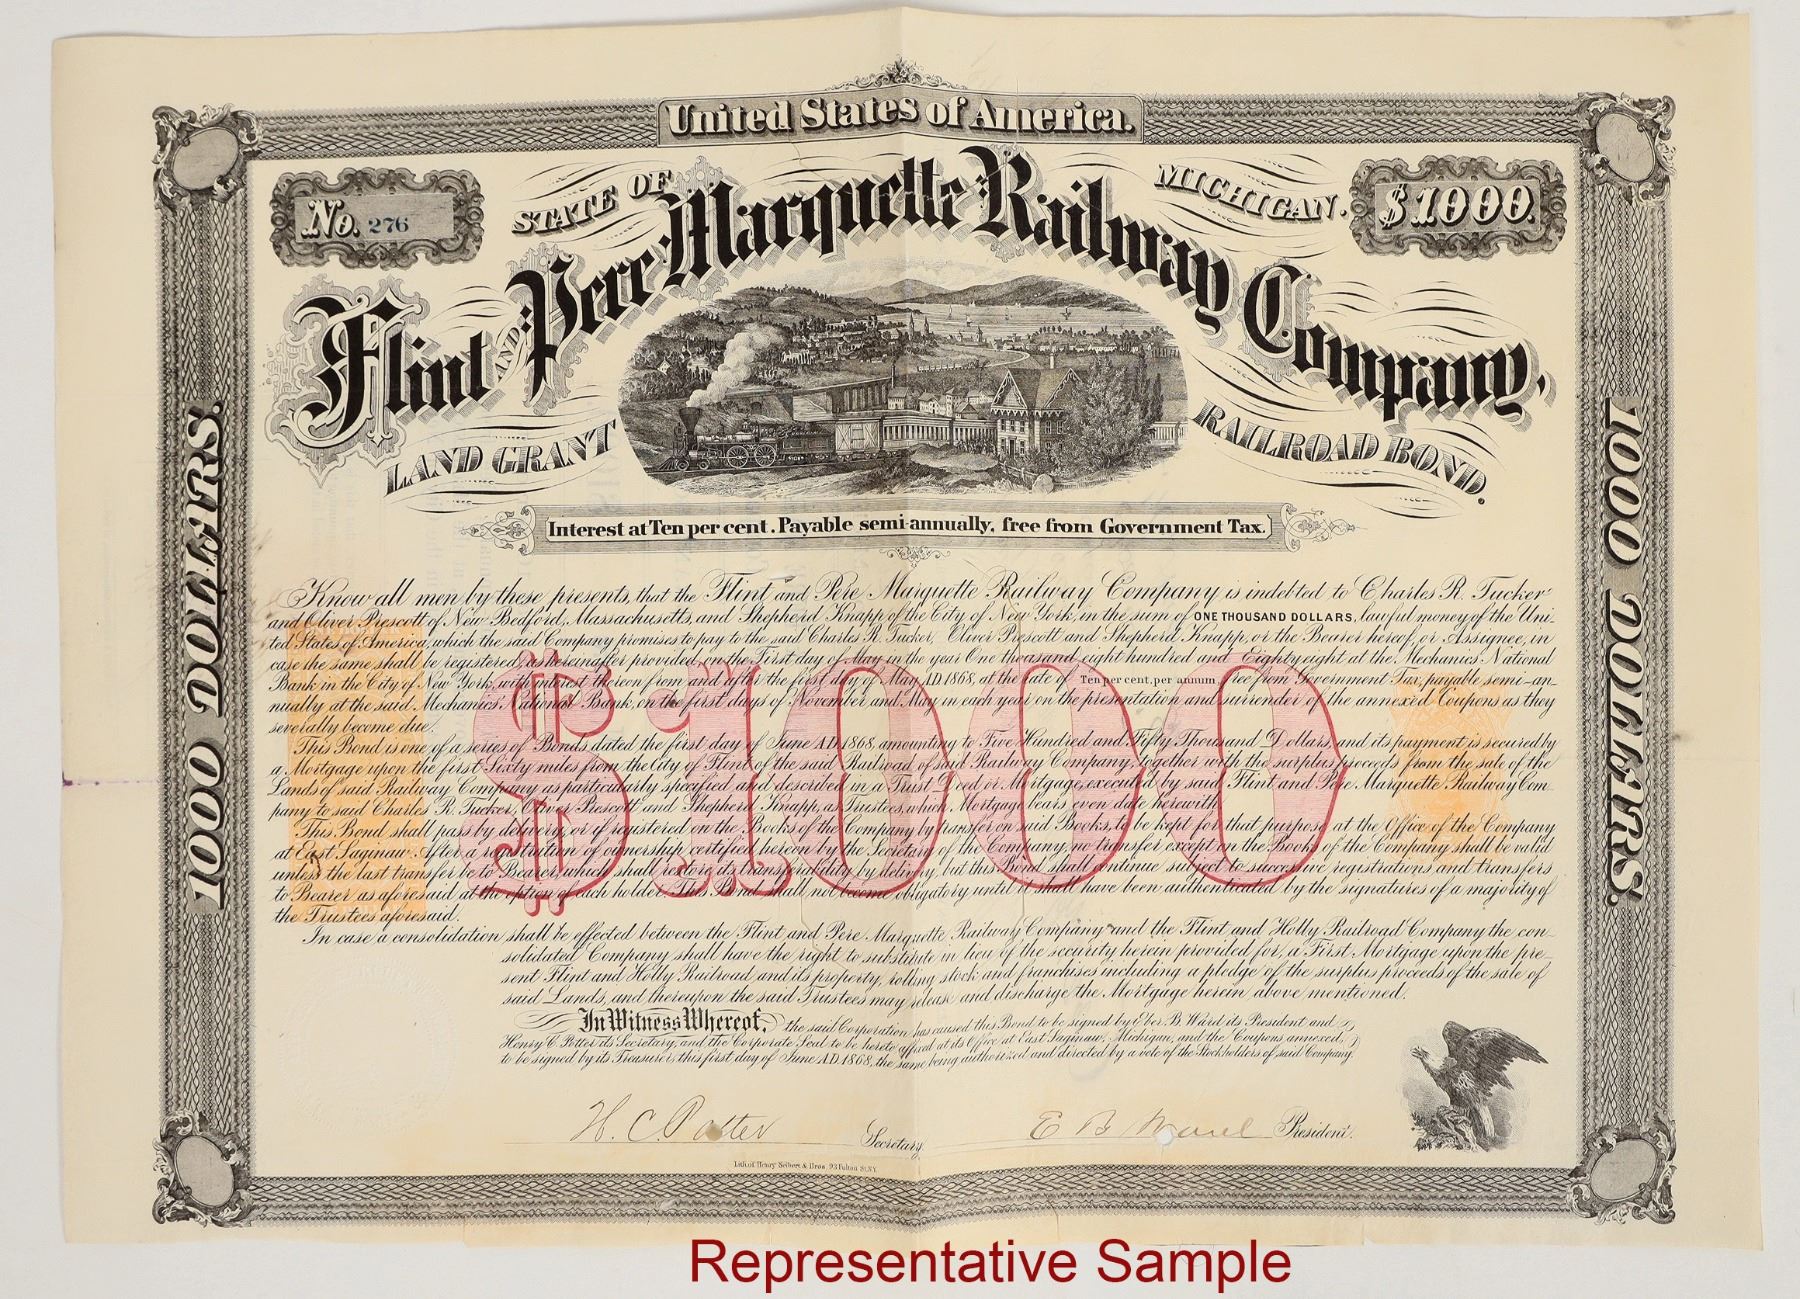 United States of America.
No. 276
STATE OF
MICHIGAN.
$1000.
Flint AND Pere Marquette Railway Company,
LAND GRANT
RAILROAD BOND.
Interest at Ten per cent. Payable semi-annually, free from Government Tax.
1000 DOLLARS.
1000 DOLLARS.
$1000
Know all men by these presents, that the Flint and Pere Marquette Railway Company is indebted to Charles R. Tucker
and Oliver Prescott of New Bedford, Massachusetts, and Shepherd Knapp of the City of New York, in the sum of ONE THOUSAND DOLLARS, lawful money of the Uni-
ted States of America, which the said Company promises to pay to the said Charles R. Tucker, Oliver Prescott and Shepherd Knapp, or the Bearer hereof, or Assignee, in
case the same shall be registered, as hereinafter provided, on the First day of May in the year One thousand eight hundred and Eighty eight at the Mechanics National
Bank in the City of New York, with interest thereon from and after the first day of May A.D. 1868, at the rate of Ten per cent, per annum free from Government Tax, payable semi-an-
nually at the said Mechanics National Bank, on the first days of November and May in each year, on the presentation and surrender of the annexed Coupons as they
severally become due.
This Bond is one of a series of Bonds dated the first day of June A.D. 1868, amounting to Five Hundred and Fifty Thousand Dollars, and its payment is secured by
a Mortgage upon the first Sixty miles from the City of Flint of the said Railroad of said Railway Company, together with the surplus proceeds from the sale of the
Lands of said Railway Company as particularly specified and described in a Trust Deed or Mortgage executed by said Flint and Pere Marquette Railway Com-
pany to said Charles R. Tucker, Oliver Prescott and Shepherd Knapp, as Trustees, which Mortgage bears even date herewith.
This Bond shall pass by delivery, or if registered on the Books of the Company by transfer on said Books, to be kept for that purpose at the Office of the Company
at East Saginaw. After a registration of ownership certified hereon by the Secretary of the Company, no transfer except on the Books of the Company shall be valid
unless the last transfer be to Bearer, which shall restore its transferability by delivery, but this Bond shall continue subject to successive registrations and transfers
to Bearer as aforesaid at the option of each holder. This Bond shall not become obligatory until it shall have been authenticated by the signatures of a majority of
the Trustees aforesaid.
In case a consolidation shall be effected between the Flint and Pere Marquette Railway Company and the Flint and Holly Railroad Company the con-
solidated Company shall have the right to substitute in lieu of the security herein provided for, a First Mortgage upon the pre-
sent Flint and Holly Railroad and its property, rolling stock and franchises including a pledge of the surplus proceeds of the sale of
said Lands, and thereupon the said Trustees may release and discharge the Mortgage herein above mentioned.
In Witness Whereof, the said Corporation has caused this Bond to be signed by Eber B. Ward its President and
Henry C. Potter its Secretary, and the Corporate Seal to be hereto affixed at its Office at East Saginaw, Michigan, and the Coupons annexed,
to be signed by its Treasurer, this first day of June A.D. 1868, the same being authorized and directed by a vote of the Stockholders of said Company.
H. C. Potter Secretary.
E B Ward President.
Lith. of Henry Seibert & Bros. 93 Fulton St. N.Y.
Representative Sample